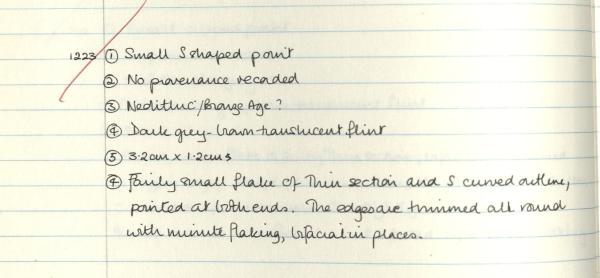 1223 ① Small S shaped point
② No provenance recorded
③ Neolithic/Bronze Age?
④ Dark grey-brown translucent flint
⑤ 3.2cm x 1.2cms
④ Fairly small flake of thin section and S curved outline,
pointed at both ends. The edges are trimmed all round
with minute flaking, bifacial in places.